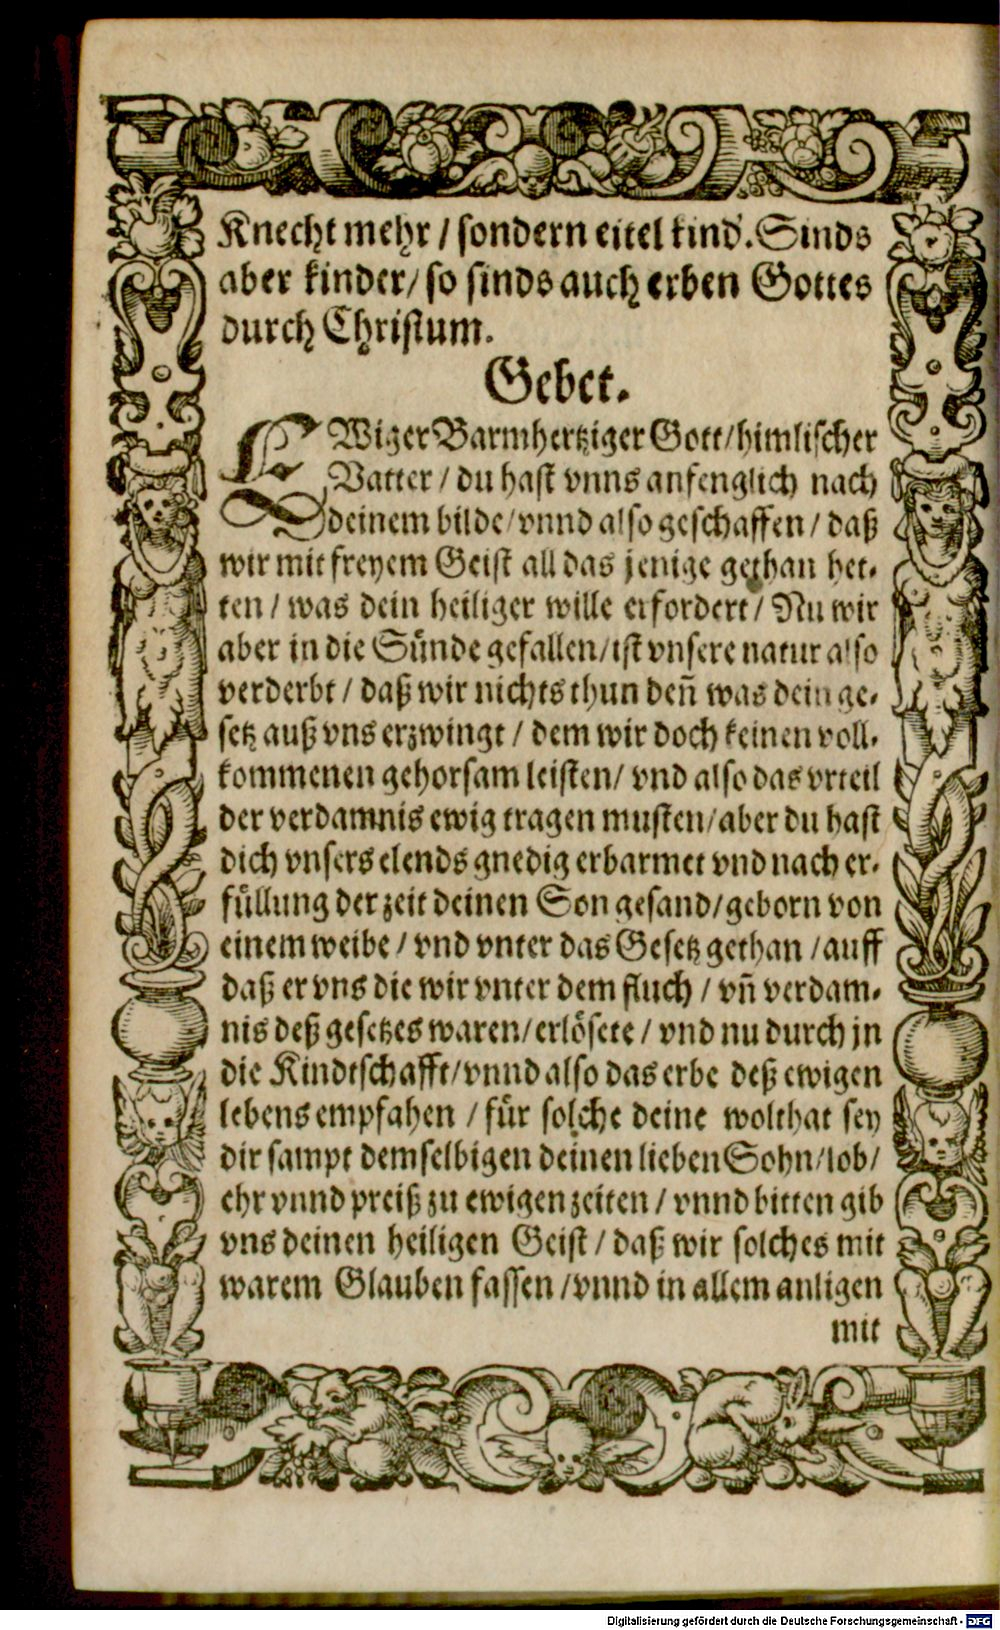 Knecht mehr / sondern eitel kind. Sinds
aber kinder / so sinds auch erben Gottes
durch Christum.
Gebet.
EWiger Barmhertziger Gott / himlischer
Vatter / du hast vnns anfenglich nach
deinem bilde / vnnd also geschaffen / daß
wir mit freyem Geist all das jenige gethan het-
ten / was dein heiliger wille erfordert / Nu wir
aber in die Sünde gefallen / ist vnsere natur also
verderbt / daß wir nichts thun deñ was dein ge-
setz auß vns erzwingt / dem wir doch keinen voll-
kommenen gehorsam leisten / vnd also das vrteil
der verdamnis ewig tragen musten / aber du hast
dich vnsers elends gnedig erbarmet vnd nach er-
füllung der zeit deinen Son gesand / geborn von
einem weibe / vnd vnter das Gesetz gethan / auff
daß er vns die wir vnter dem fluch / vñ verdam-
nis deß gesetzes waren / erlösete / vnd nu durch jn
die Kindtschafft / vnnd also das erbe deß ewigen
lebens empfahen / für solche deine wolthat sey
dir sampt demselbigen deinen lieben Sohn / lob /
ehr vnnd preiß zu ewigen zeiten / vnnd bitten gib
vns deinen heiligen Geist / daß wir solches mit
warem Glauben fassen / vnnd in allem anligen
mit
Digitalisierung gefördert durch die Deutsche Forschungsgemeinschaft - DFG